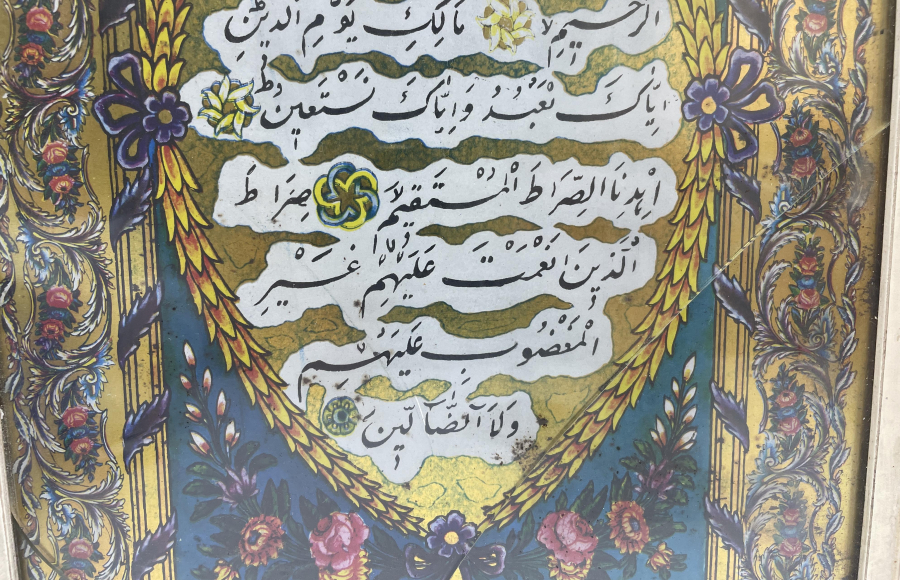 الرَّحِيمِ مَالِكِ يَوْمِ الدِّينِ
اِيَّاكَ نَعْبُدُ وَاِيَّاكَ نَسْتَعِينُ ط
اِهْدِنَا الصِّرَاطَ الْمُسْتَقِيمَ لا صِرَاطَ
الَّذِينَ اَنْعَمْتَ عَلَيْهِمْ غَيْرِ
الْمَغْضُوبِ عَلَيْهِمْ
وَلَا الضَّالِّينَ